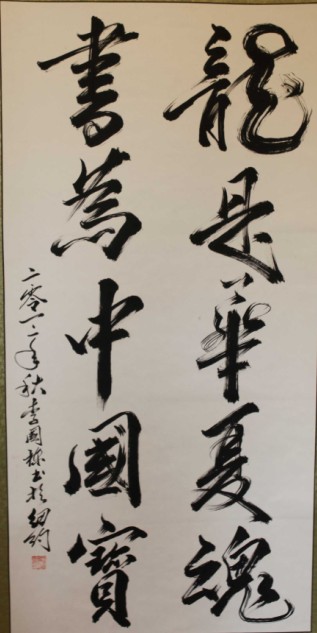 龍是華夏魂
書為中國寶
二零一二年秋李國林書於紐約